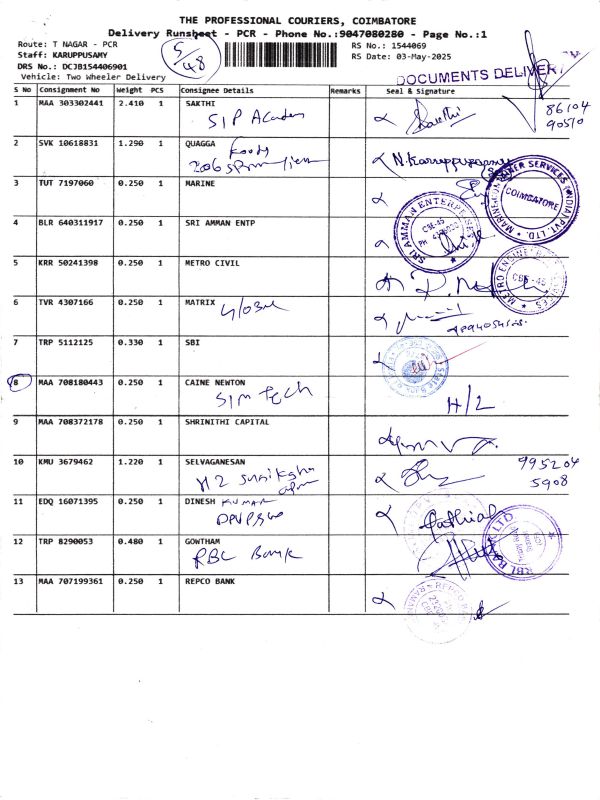 THE PROFESSIONAL COURIERS, COIMBATORE
Delivery Runsheet - PCR - Phone No.:9047080280 - Page No.:1
Route: T NAGAR - PCR
Staff: KARUPPUSAMY
DRS No.: DCJB154406901
Vehicle: Two Wheeler Delivery
5/48
RS No.: 1544069
RS Date: 03-May-2025
DOCUMENTS DELIVERY
S No Consignment No Weight PCS Consignee Details Remarks Seal & Signature
1 MAA 303302441 2.410 1 SAKTHI
SIP Academy
Sakthi
86104
90510
2 SVK 10618831 1.290 1 QUAGGA
Foods
N. Karuppusamy
3 TUT 7197060 0.250 1 MARINE
COIMBATORE
4 BLR 640311917 0.250 1 SRI AMMAN ENTP
SRI AMMAN ENTERPRISES
CBE-45
5 KRR 50241398 0.250 1 METRO CIVIL
CBE-45
6 TVR 4307166 0.250 1 MATRIX
7 TRP 5112125 0.330 1 SBI
8 MAA 708180443 0.250 1 CAINE NEWTON
SIM tech
H/2
9 MAA 708372178 0.250 1 SHRINITHI CAPITAL
10 KMU 3679462 1.220 1 SELVAGANESAN
995204
5908
11 EDQ 16071395 0.250 1 DINESH KUMAR
12 TRP 8290053 0.480 1 GOWTHAM
RBL Bank
RBL BANK LTD.
13 MAA 707199361 0.250 1 REPCO BANK